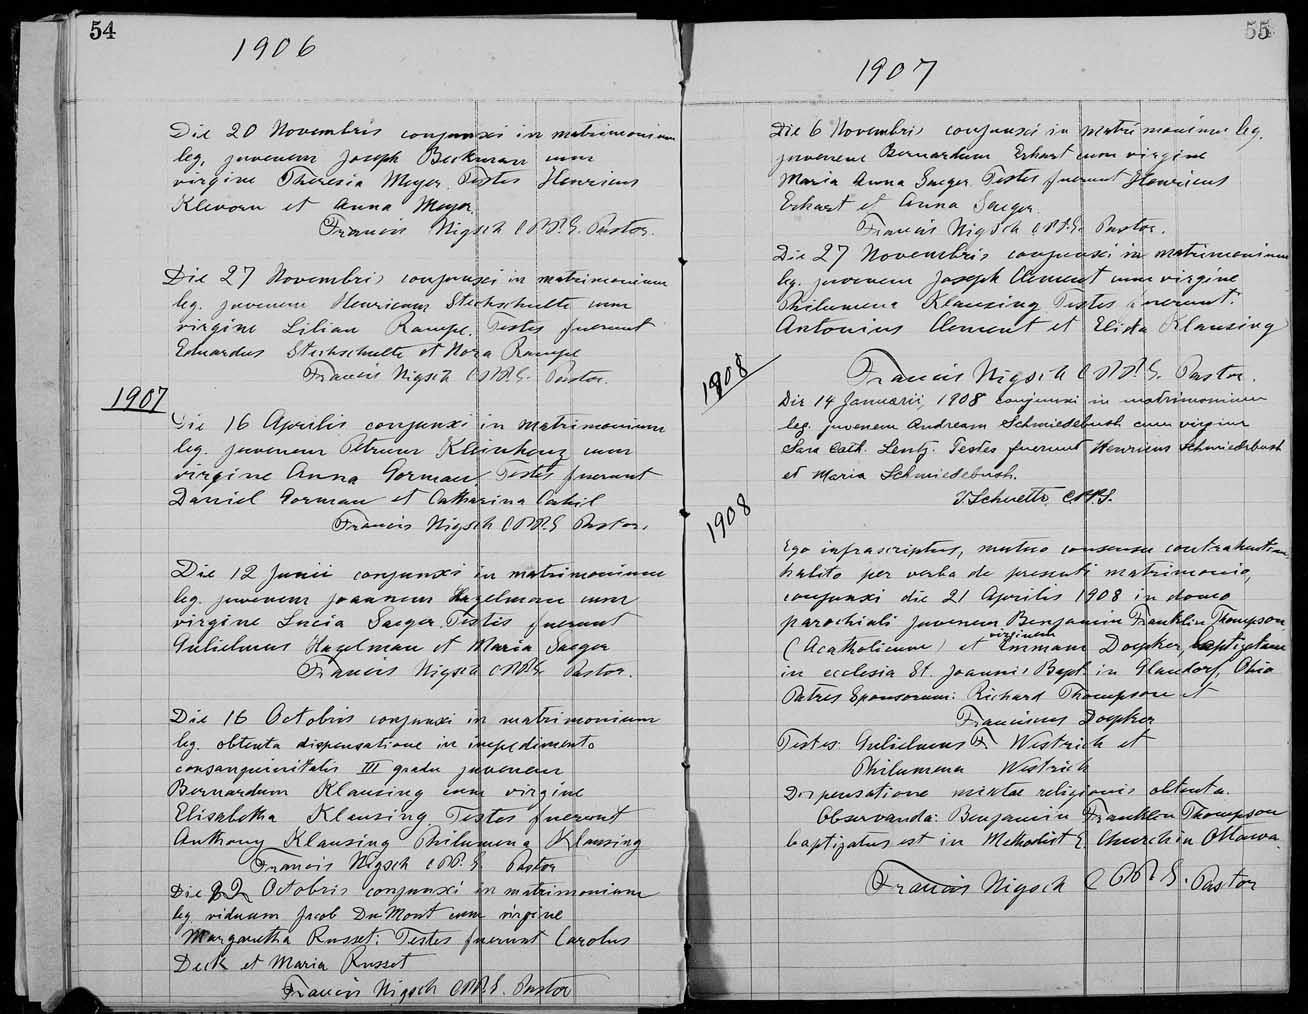 54
1906
Die 20 Novembris conjunxi in matrimonium
leg. juvenem Joseph Beckman cum
virgine Theresia Meyer. Testes Henricus
Klevorn et Anna Meyer.
Francis Nigsch C.PP.S. Pastor.
Die 27 Novembris conjunxi in matrimonium
leg. juvenem Henricum Stechschulte cum
virgine Lilian Rampe. Testes fuerunt
Eduardus Stechschulte et Nora Rampe
Francis Nigsch C.PP.S. Pastor.
1907
Die 16 Aprilis conjunxi in matrimonium
leg. juvenem Petrum Kleinhenz cum
virgine Anna Gorman. Testes fuerunt
Daniel Gorman et Catharina Cahil
Francis Nigsch C.PP.S Pastor.
Die 12 Junii conjunxi in matrimonium
leg. juvenem Joannem Hagelman cum
virgine Lucia Saeger. Testes fuerunt
Gulielmus Hagelman et Maria Saeger
Francis Nigsch C.PP.S. Pastor.
Die 16 Octobris conjunxi in matrimonium
leg. obtenta dispensatione in impedimento
consanguinitatis III gradu juvenem
Bernardum Klausing cum virgine
Elisabetha Klausing Testes fuerunt
Anthony Klausing Philumena Klausing
Francis Nigsch C.PP.S Pastor
Die 22 Octobris conjunxi in matrimonium
leg. viduum Jacob DuMont cum virgine
Margaretha Russet. Testes fuerunt Carolus
Deck et Maria Russet
Francis Nigsch C.PP.S. Pastor
55
1907
Die 6 Novembris conjunxi in matrimonium leg.
juvenem Bernardum Erhart cum virgine
Maria Anna Saeger. Testes fuerunt Henricus
Erhart et Anna Saeger.
Francis Nigsch C.PP.S. Pastor.
Die 27 Novembris conjunxi in matrimonium
leg. juvenem Joseph Clement cum virgine
Philumena Klausing. Testes fuerunt
Antonius Clement et Elida Klausing
Francis Nigsch C.PP.S. Pastor.
1908
Die 14 Januarii, 1908 conjunxi in matrimonium
leg. juvenem Andream Schmiedebusch cum virgine
Sara Cath. Lentz. Testes fuerunt Henricus Schmiedebusch
et Maria Schmiedebusch.
T. Schuette. C.PP.S.
1908
Ego infrascriptus, mutuo consensu contrahentium
habito per verba de presenti matrimonio,
conjunxi die 21 Aprilis 1908 in domo
parochiali juvenem Benjamin Franklin Thompson
(Acatholicum) et virginem Emmam Doepker, baptizatam
in ecclesia St. Joannis Bapt. in Glandorf, Ohio
Patres Sponsorum: Richard Thompson et
Franciscus Doepker
Testes: Gulielmus F. Westrich et
Philumena Westrich
Dispensatione mixtae religionis obtenta.
Observanda: Benjamin Franklin Thompson
baptizatus est in Methodist E. Church in Ottawa.
Francis Nigsch C.PP.S. Pastor